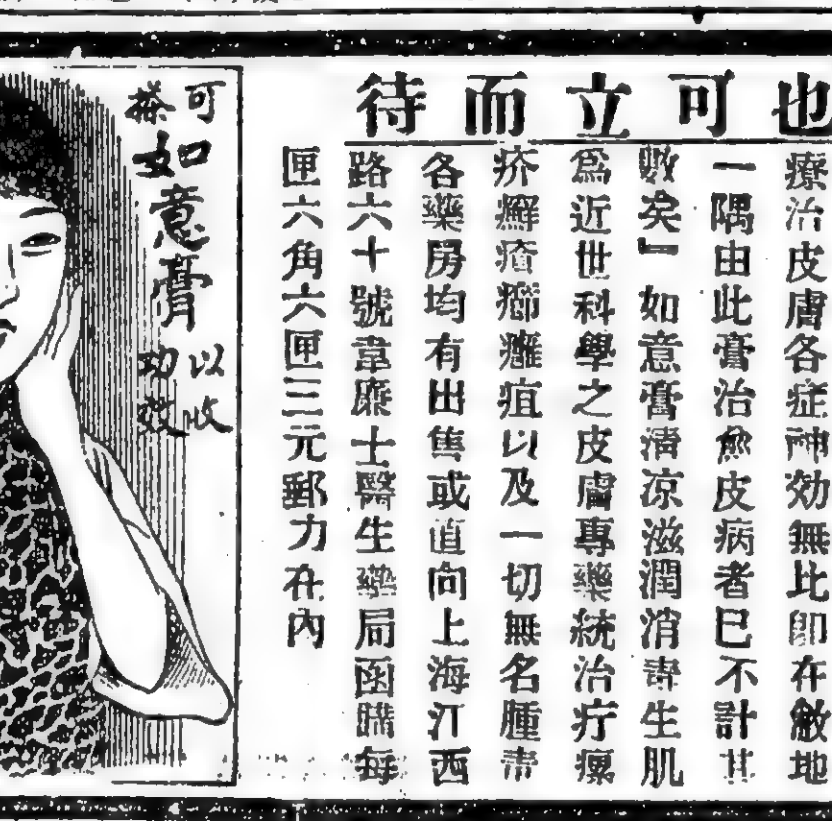 也可立而待
療治皮膚各症神効無比即在敝地
一隅由此膏治愈皮病者已不計其
數矣』如意膏清凉滋潤消毒生肌
為近世科學之皮膚專藥統治疔瘰
疥癬瘡癤癰疽以及一切無名腫毒
各藥房均有出售或直向上海江西
路六十號韋廉士醫生藥局函購每
匣六角六匣三元郵力在內
可搽
如意膏
以收功效